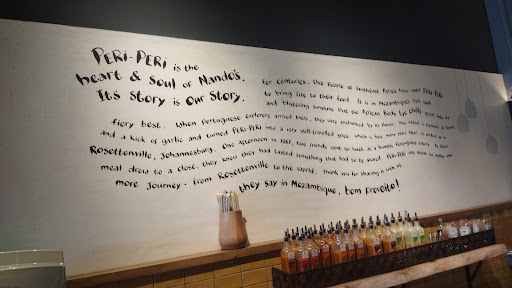 PERI-PERI is the
heart & soul of Nando's.
Its Story is Our Story.
For centuries, the people of Southern Africa have used PERI-PERI
to bring fire to their food. It is in Mozambique's rich soil
and blistering sunshine that the African Bird's Eye Chilli grows into its
fiery best. When Portuguese explorers arrived there, they were enchanted by its flavour. They added a squeeze of lemon
and a kick of garlic and turned PERI-PERI into a very well-travelled spice, which is how, many years later, it ended up in
Rosettenville, Johannesburg. One afternoon in 1987, two friends went for lunch at a humble Portuguese eatery. As their
meal drew to a close, they knew they had tasted something that had to be shared. PERI-PERI was about to make one
more journey - from Rosettenville to the world. Thank you for sharing it with us.
they say in Mozambique, bom proveito!